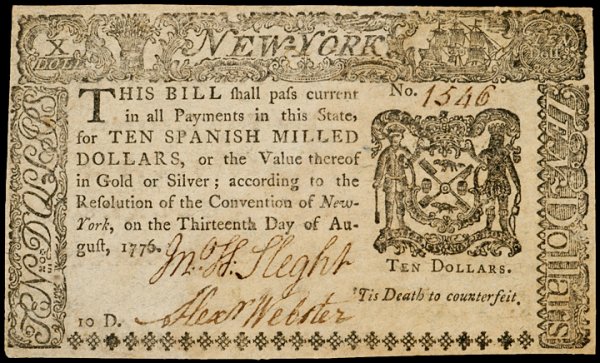 X
DOLL
NEW-YORK
No. 1546
THIS BILL shall pass current
in all Payments in this State,
for TEN SPANISH MILLED
DOLLARS, or the Value thereof
in Gold or Silver; according to the
Resolution of the Convention of New-
York, on the Thirteenth Day of Au-
gust, 1776.
Jno. H. Sleght
Alexr Webster
TEN DOLLARS.
'Tis Death to counterfeit.
10 D.
Ten Dollars